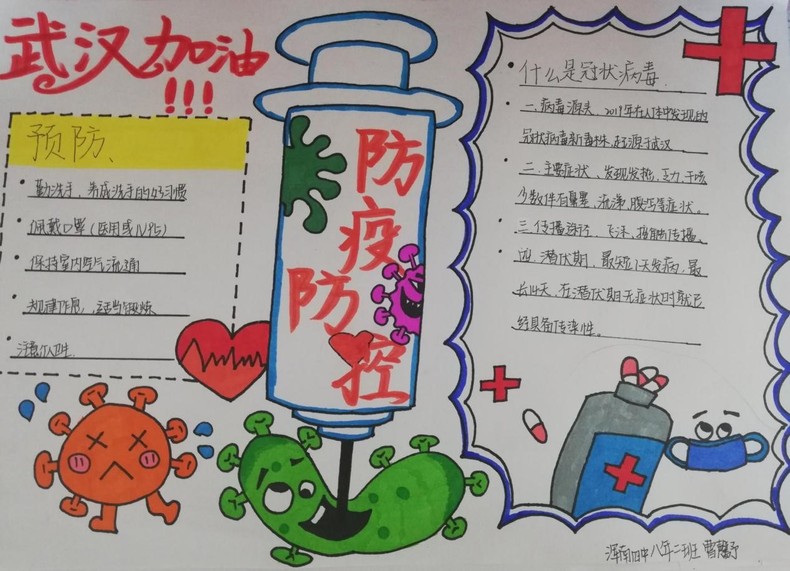 武汉加油
!!!
预防、
勤洗手、养成洗手的好习惯
佩戴口罩（医用或N95）
保持室内空气流通
规律作息，适当锻炼
注意个人卫生
防
疫
防
控
什么是冠状病毒.
一.病毒源头、2019年在人体中发现的
冠状病毒新毒株，起源于武汉
二.主要症状、发现发烧、乏力、干咳
少数伴有鼻塞、流涕、腹泻等症状。
三.传播途径、飞沫、接触传播、
四.潜伏期、最短1天发病，最
长14天，在潜伏期无症状时就已
经具备传染性。
浑南四中八年二班